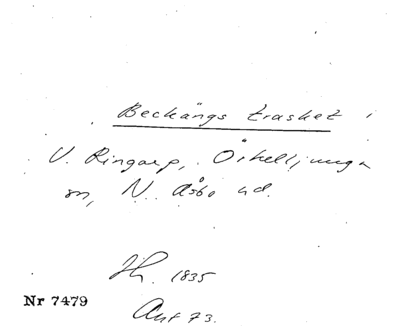 Beckängs trasket i
V. Ringarp, Örkelljunga
sn, N. Åsbo hd.
1835
Nr 7479
Ant 73.